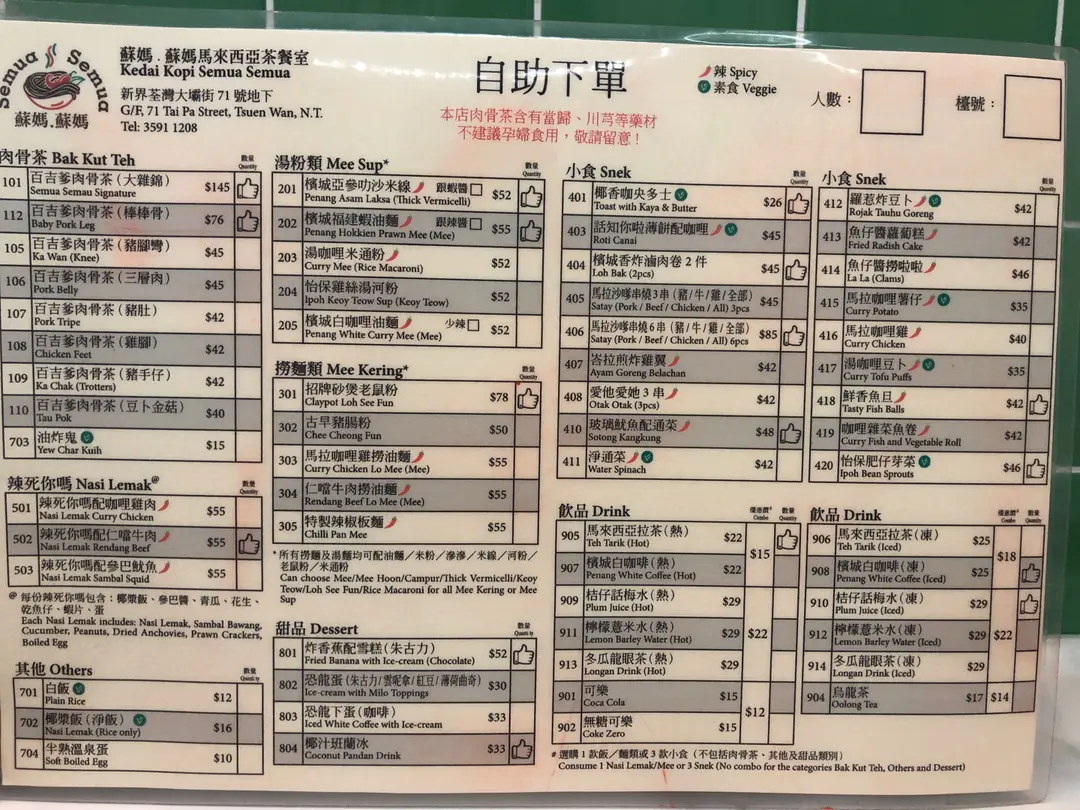 Semua Semua
蘇媽.蘇媽
蘇媽．蘇媽馬來西亞茶餐室
Kedai Kopi Semua Semua
新界荃灣大壩街 71 號地下
G/F, 71 Tai Pa Street, Tsuen Wan, N.T.
Tel: 3591 1208
自助下單
本店肉骨茶含有當歸、川芎等藥材
不建議孕婦食用，敬請留意！
辣 Spicy
素食 Veggie
人數：
檯號：
肉骨茶 Bak Kut Teh
數量 Quantity
101 百吉爹肉骨茶（大雜錦） $145
Semua Semau Signature
112 百吉爹肉骨茶（棒棒骨） $76
Baby Pork Leg
105 百吉爹肉骨茶（豬腳彎） $45
Ka Wan (Knee)
106 百吉爹肉骨茶（三層肉） $45
Pork Belly
107 百吉爹肉骨茶（豬肚） $42
Pork Tripe
108 百吉爹肉骨茶（雞腳） $42
Chicken Feet
109 百吉爹肉骨茶（豬手仔） $42
Ka Chak (Trotters)
110 百吉爹肉骨茶（豆卜金菇） $40
Tau Pok
703 油炸鬼 $15
Yew Char Kuih
辣死你嗎 Nasi Lemak@
數量 Quantity
501 辣死你嗎配咖哩雞肉 $55
Nasi Lemak Curry Chicken
502 辣死你嗎配仁噹牛肉 $55
Nasi Lemak Rendang Beef
503 辣死你嗎配參巴魷魚 $55
Nasi Lemak Sambal Squid
@ 每份辣死你嗎包含：椰漿飯、參巴醬、青瓜、花生、
乾魚仔、蝦片、蛋
Each Nasi Lemak includes: Nasi Lemak, Sambal Bawang,
Cucumber, Peanuts, Dried Anchovies, Prawn Crackers,
Boiled Egg
其他 Others
數量 Quantity
701 白飯 $12
Plain Rice
702 椰漿飯（淨飯） $16
Nasi Lemak (Rice only)
704 半熟溫泉蛋 $10
Soft Boiled Egg
湯粉類 Mee Sup*
數量 Quantity
201 檳城亞參叻沙米線 跟蝦醬 $52
Penang Asam Laksa (Thick Vermicelli)
202 檳城福建蝦油麵 跟辣醬 $55
Penang Hokkien Prawn Mee (Mee)
203 湯咖哩米通粉 $52
Curry Mee (Rice Macaroni)
204 怡保雞絲湯河粉 $52
Ipoh Keoy Teow Sup (Keoy Teow)
205 檳城白咖哩油麵 少辣 $52
Penang White Curry Mee (Mee)
撈麵類 Mee Kering*
數量 Quantity
301 招牌砂煲老鼠粉 $78
Claypot Loh See Fun
302 古早豬腸粉 $50
Chee Cheong Fun
303 馬拉咖哩雞撈油麵 $55
Curry Chicken Lo Mee (Mee)
304 仁噹牛肉撈油麵 $55
Rendang Beef Lo Mee (Mee)
305 特製辣椒板麵 $55
Chilli Pan Mee
* 所有撈麵及湯麵均可配油麵／米粉／滲滲／米線／河粉／
老鼠粉／米通粉
Can choose Mee/Mee Hoon/Campur/Thick Vermicelli/Keoy
Teow/Loh See Fun/Rice Macaroni for all Mee Kering or Mee
Sup
甜品 Dessert
數量 Quantity
801 炸香蕉配雪糕（朱古力） $52
Fried Banana with Ice-cream (Chocolate)
802 恐龍蛋（朱古力/雲呢拿/紅豆/薄荷曲奇） $30
Ice-cream with Milo Toppings
803 恐龍下蛋（咖啡） $33
Iced White Coffee with Ice-cream
804 椰汁班蘭冰 $33
Coconut Pandan Drink
小食 Snek
數量 Quantity
401 椰香咖央多士 $26
Toast with Kaya & Butter
403 話知你啦薄餅配咖哩 $45
Roti Canai
404 檳城香炸滷肉卷 2 件 $45
Loh Bak (2pcs)
405 馬拉沙嗲串燒 3 串（豬/牛/雞/全部） $45
Satay (Pork / Beef / Chicken / All) 3pcs
406 馬拉沙嗲串燒 6 串（豬/牛/雞/全部） $85
Satay (Pork / Beef / Chicken / All) 6pcs
407 峇拉煎炸雞翼 $42
Ayam Goreng Belachan
408 愛他愛她 3 串 $42
Otak Otak (3pcs)
410 玻璃魷魚配通菜 $48
Sotong Kangkung
411 淨通菜 $42
Water Spinach
小食 Snek
數量 Quantity
412 羅惹炸豆卜 $42
Rojak Tauhu Goreng
413 魚仔醬蘿蔔糕 $42
Fried Radish Cake
414 魚仔醬撈啦啦 $46
La La (Clams)
415 馬拉咖哩薯仔 $35
Curry Potato
416 馬拉咖哩雞 $40
Curry Chicken
417 湯咖哩豆卜 $35
Curry Tofu Puffs
418 鮮香魚旦 $42
Tasty Fish Balls
419 咖哩雜菜魚卷 $42
Curry Fish and Vegetable Roll
420 怡保肥仔芽菜 $46
Ipoh Bean Sprouts
飲品 Drink
優惠價# Combo
數量 Quantity
905 馬來西亞拉茶（熱） $22
Teh Tarik (Hot)
$15
907 檳城白咖啡（熱） $22
Penang White Coffee (Hot)
909 桔仔話梅水（熱） $29
Plum Juice (Hot)
911 檸檬薏米水（熱） $29 $22
Lemon Barley Water (Hot)
913 冬瓜龍眼茶（熱） $29
Longan Drink (Hot)
901 可樂 $15
Coca Cola
$12
902 無糖可樂 $15
Coke Zero
飲品 Drink
優惠價# Combo
數量 Quantity
906 馬來西亞拉茶（凍） $25
Teh Tarik (Iced)
$18
908 檳城白咖啡（凍） $25
Penang White Coffee (Iced)
910 桔仔話梅水（凍） $29
Plum Juice (Iced)
912 檸檬薏米水（凍） $29 $22
Lemon Barley Water (Iced)
914 冬瓜龍眼茶（凍） $29
Longan Drink (Iced)
904 烏龍茶 $17 $14
Oolong Tea
# 選購 1 款飯／麵類或 3 款小食（不包括肉骨茶、其他及甜品類別）
Consume 1 Nasi Lemak/Mee or 3 Snek (No combo for the categories Bak Kut Teh, Others and Dessert)